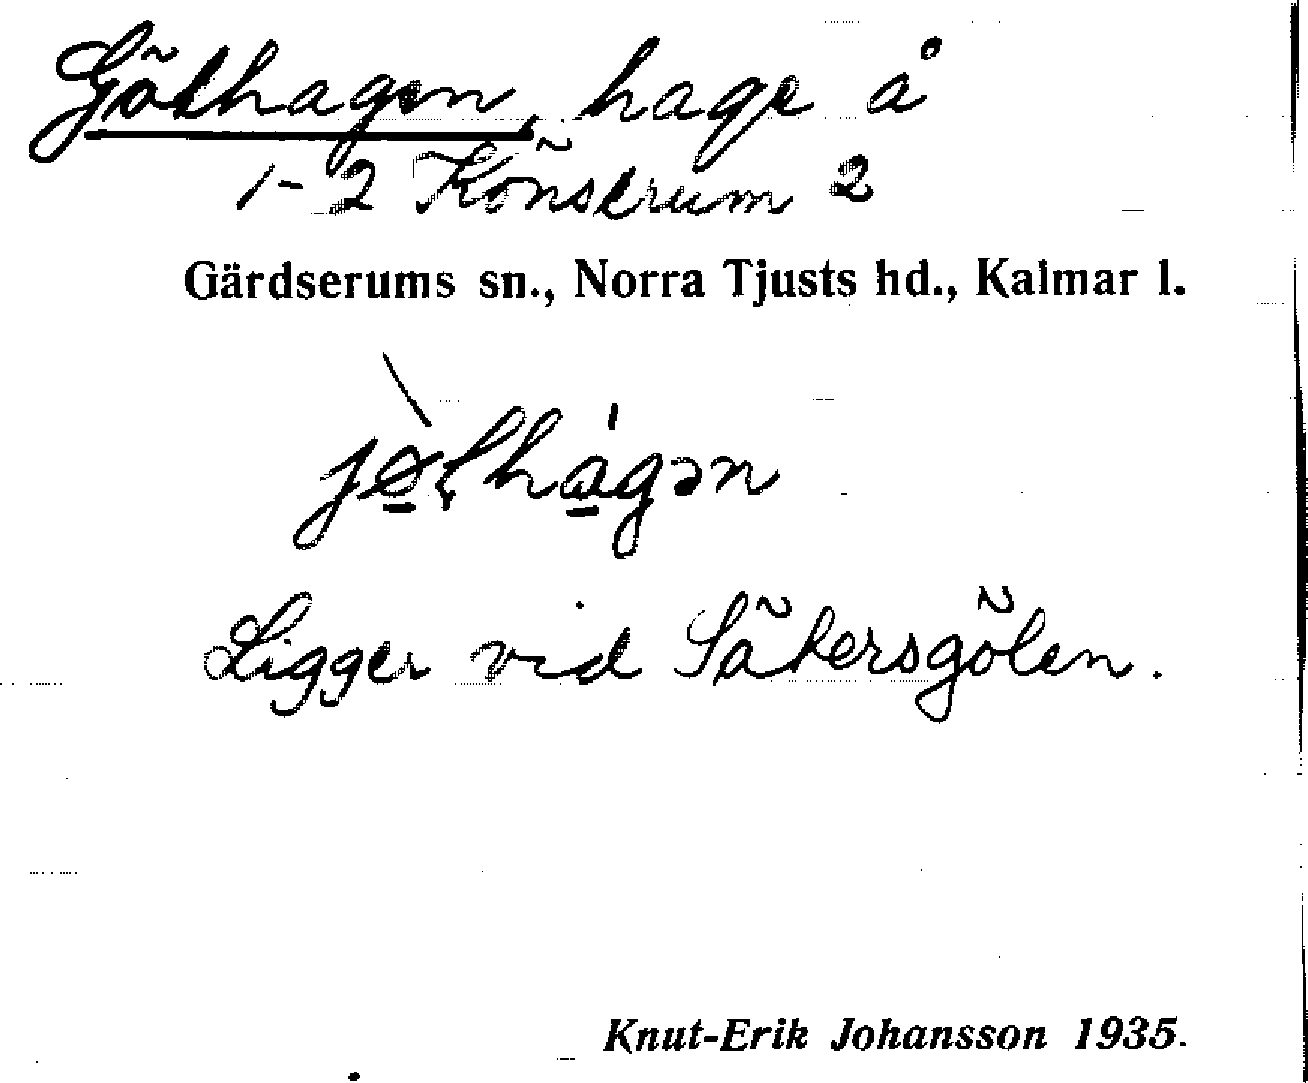 Gölhagen, hage å
1-2 Könserum 2
Gärdserums sn., Norra Tjusts hd., Kalmar l.
Ligger vid Säkersgölen.
Knut-Erik Johansson 1935.